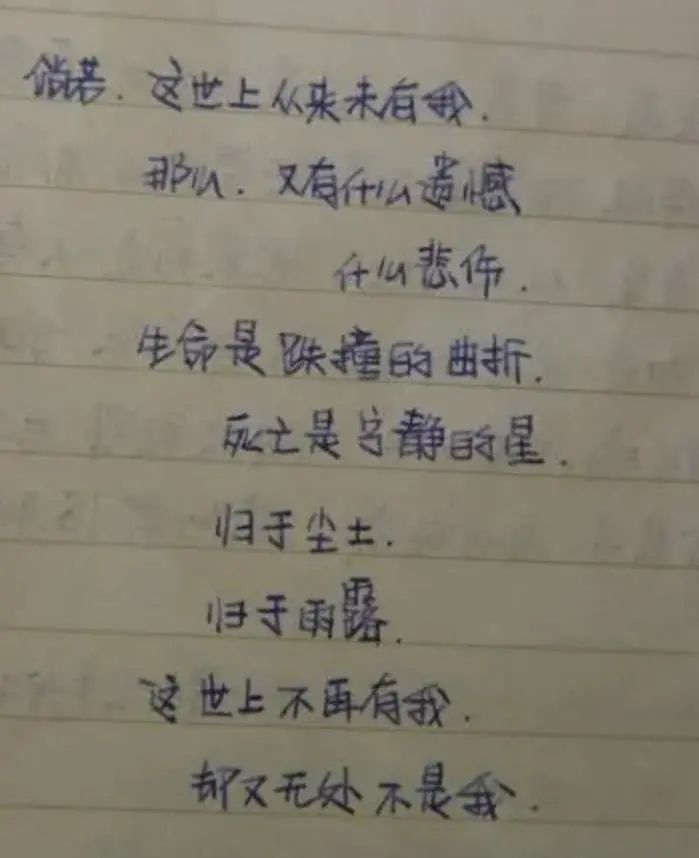 倘若.这世上从来未有我.
那么.又有什么遗憾
什么悲伤.
生命是跌撞的曲折.
死亡是宁静的星.
归于尘土.
归于雨露.
这世上不再有我.
却又无处不是我.